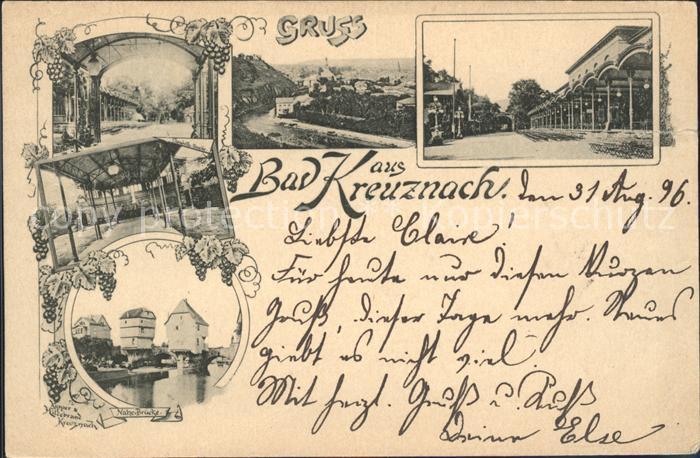 GRUSS
aus
Bad Kreuznach. den 31 Aug. 96.
Liebste Claire!
Für heute nur diesen kurzen
Gruß, dieser Tage mehr. Neues
giebt es nicht viel.
Mit herzl. Gruß u. Kuß
Deine Else
Hillebrand
Kreuznach
Nahe-Brücke.